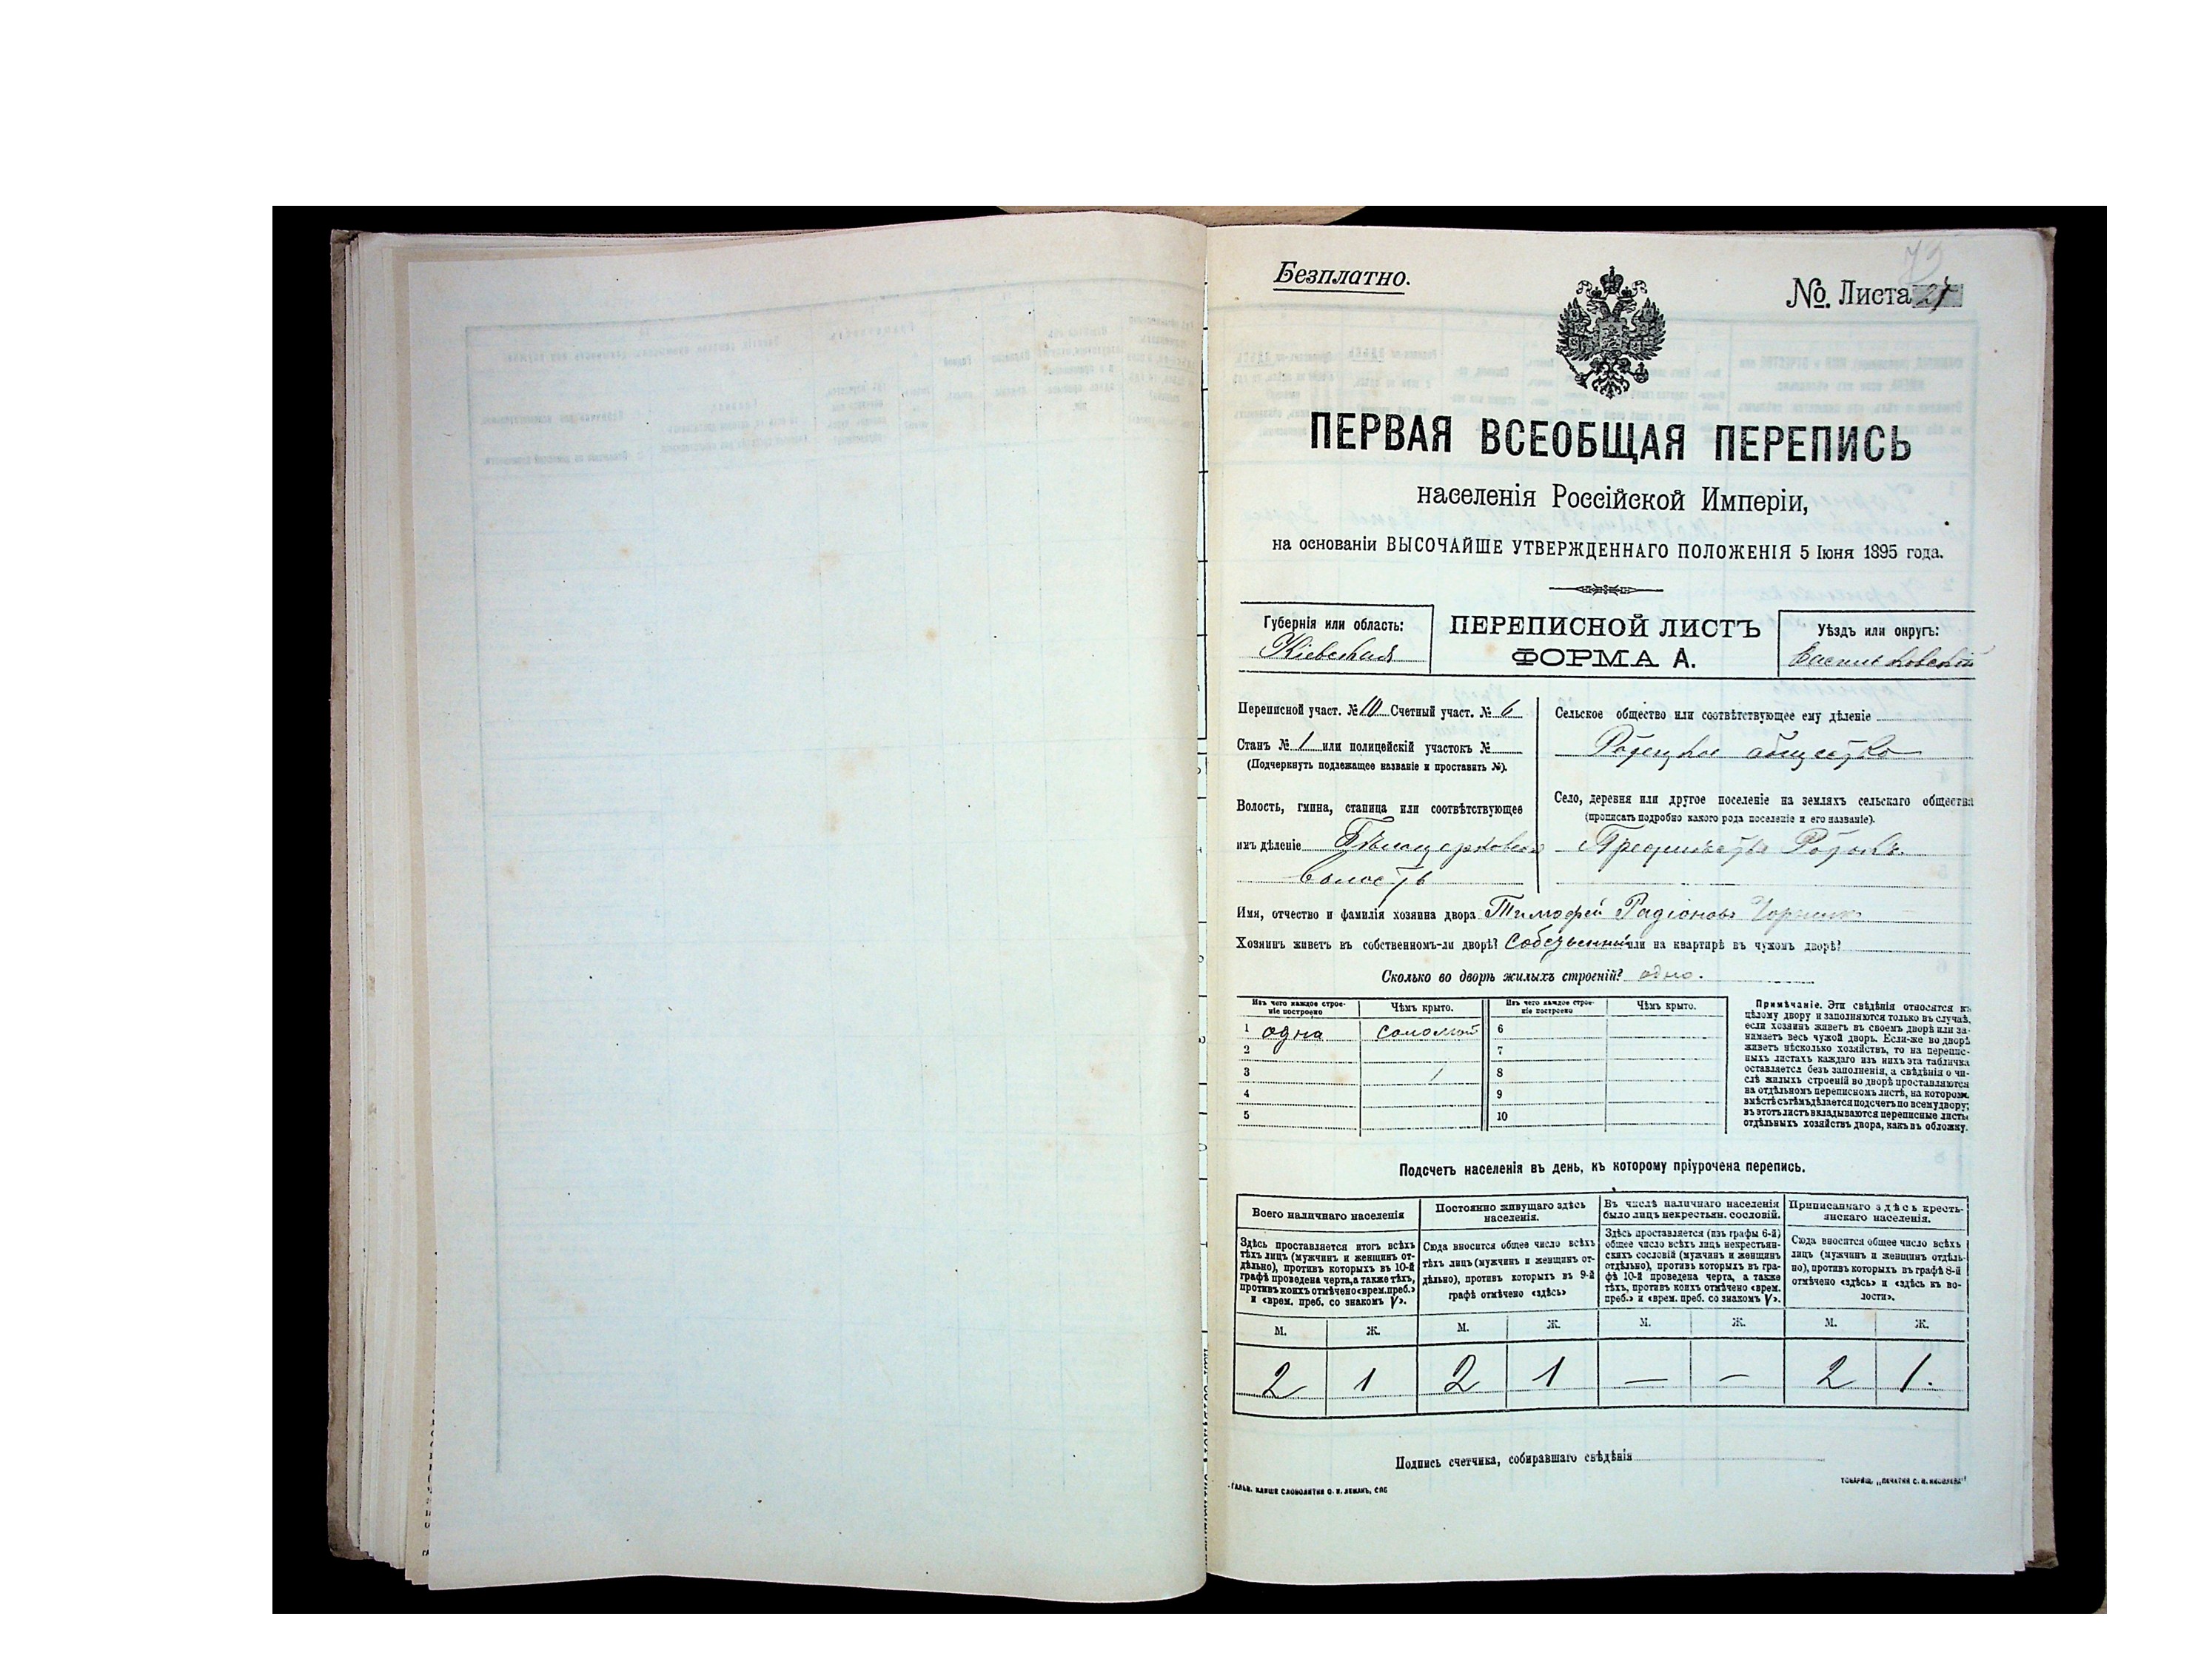 73
Безплатно.
№. Листа 27
ПЕРВАЯ ВСЕОБЩАЯ ПЕРЕПИСЬ
населенія Россійской Имперіи,
на основаніи ВЫСОЧАЙШЕ УТВЕРЖДЕННАГО ПОЛОЖЕНІЯ 5 Іюня 1895 года.
Губернія или область:
Кіевская
ПЕРЕПИСНОЙ ЛИСТЪ
ФОРМА А.
Уѣздъ или округъ:
Васильковскій
Переписной участ. № 10 Счетный участ. № 6
Станъ № 1 или полицейскій участокъ №
(Подчеркнуть подлежащее названіе и проставить №).
Волость, гмина, станица или соотвѣтствующее
имъ дѣленіе Бѣлоцерковская
волость
Сельское общество или соотвѣтствующее ему дѣленіе
общество
Село, деревня или другое поселеніе на земляхъ сельскаго общества
(прописать подробно какого рода поселеніе и его названіе).
Предмѣстье Ротокъ
Имя, отчество и фамилія хозяина двора Тимофей Радіоновъ
Хозяинъ живетъ въ собственномъ-ли дворѣ? собственный или на квартирѣ въ чужомъ дворѣ?
Сколько во дворѣ жилыхъ строеній? одно.
Изъ чего каждое строе-
ніе построено
Чѣмъ крыто.
Изъ чего каждое строе-
ніе построено
Чѣмъ крыто.
1 одна соломой 6
2 7
3 8
4 9
5 10
Примѣчаніе. Эти свѣдѣнія относятся къ
цѣлому двору и заполняются только въ случаѣ,
если хозяинъ живетъ въ своемъ дворѣ или за-
нимаетъ весь чужой дворъ. Если-же во дворѣ
живетъ нѣсколько хозяйствъ, то на перепис-
ныхъ листахъ каждаго изъ нихъ эта табличка
оставляется безъ заполненія, а свѣдѣнія о чи-
слѣ жилыхъ строеній во дворѣ проставляются
на отдѣльномъ переписномъ листѣ, на которомъ
вмѣстѣ съ тѣмъ дѣлается подсчетъ по всему двору;
въ этотъ листъ вкладываются переписные листы
отдѣльныхъ хозяйствъ двора, какъ въ обложку.
Подсчетъ населенія въ день, къ которому пріурочена перепись.
Всего наличнаго населенія
Здѣсь проставляется итогъ всѣхъ
тѣхъ лицъ (мужчинъ и женщинъ от-
дѣльно), противъ которыхъ въ 10-й
графѣ проведена черта, а также тѣхъ,
противъ коихъ отмѣчено «врем. преб.»
и «врем. преб. со знакомъ V».
Постоянно живущаго здѣсь
населенія.
Сюда вносится общее число всѣхъ
тѣхъ лицъ (мужчинъ и женщинъ от-
дѣльно), противъ которыхъ въ 9-й
графѣ отмѣчено «здѣсь»
Въ числѣ наличнаго населенія
было лицъ некрестьян. сословій.
Здѣсь проставляется (изъ графы 6-й)
общее число всѣхъ лицъ некрестьян-
скихъ сословій (мужчинъ и женщинъ
отдѣльно), противъ которыхъ въ гра-
фѣ 10-й проведена черта, а также
тѣхъ, противъ коихъ отмѣчено «врем.
преб.» и «врем. преб. со знакомъ V».
Приписаннаго здѣсь кресть-
янскаго населенія.
Сюда вносится общее число всѣхъ
лицъ (мужчинъ и женщинъ отдѣль-
но), противъ которыхъ въ графѣ 8-й
отмѣчено «здѣсь» и «здѣсь въ во-
лости».
М. Ж. М. Ж. М. Ж. М. Ж.
2 1 2 1 — — 2 1.
Подпись счетчика, собиравшаго свѣдѣнія
ГАЛЬВ. КЛИШЕ СЛОВОЛИТНИ О. И. ЛЕМАНЪ, СПБ
ТОВАРИЩ. „ПЕЧАТНЯ С. П. ЯКОВЛЕВА"